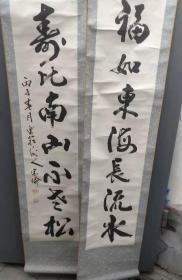 福如東海長流水
壽比南山不老松
丙子春月